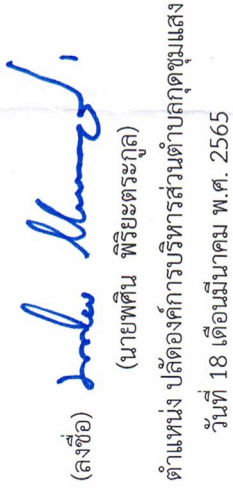 (ลงชื่อ)
(นายพศิน พิริยะตระกูล)
ตำแหน่ง ปลัดองค์การบริหารส่วนตำบลกุดชุมแสง
วันที่ 18 เดือนมีนาคม พ.ศ. 2565